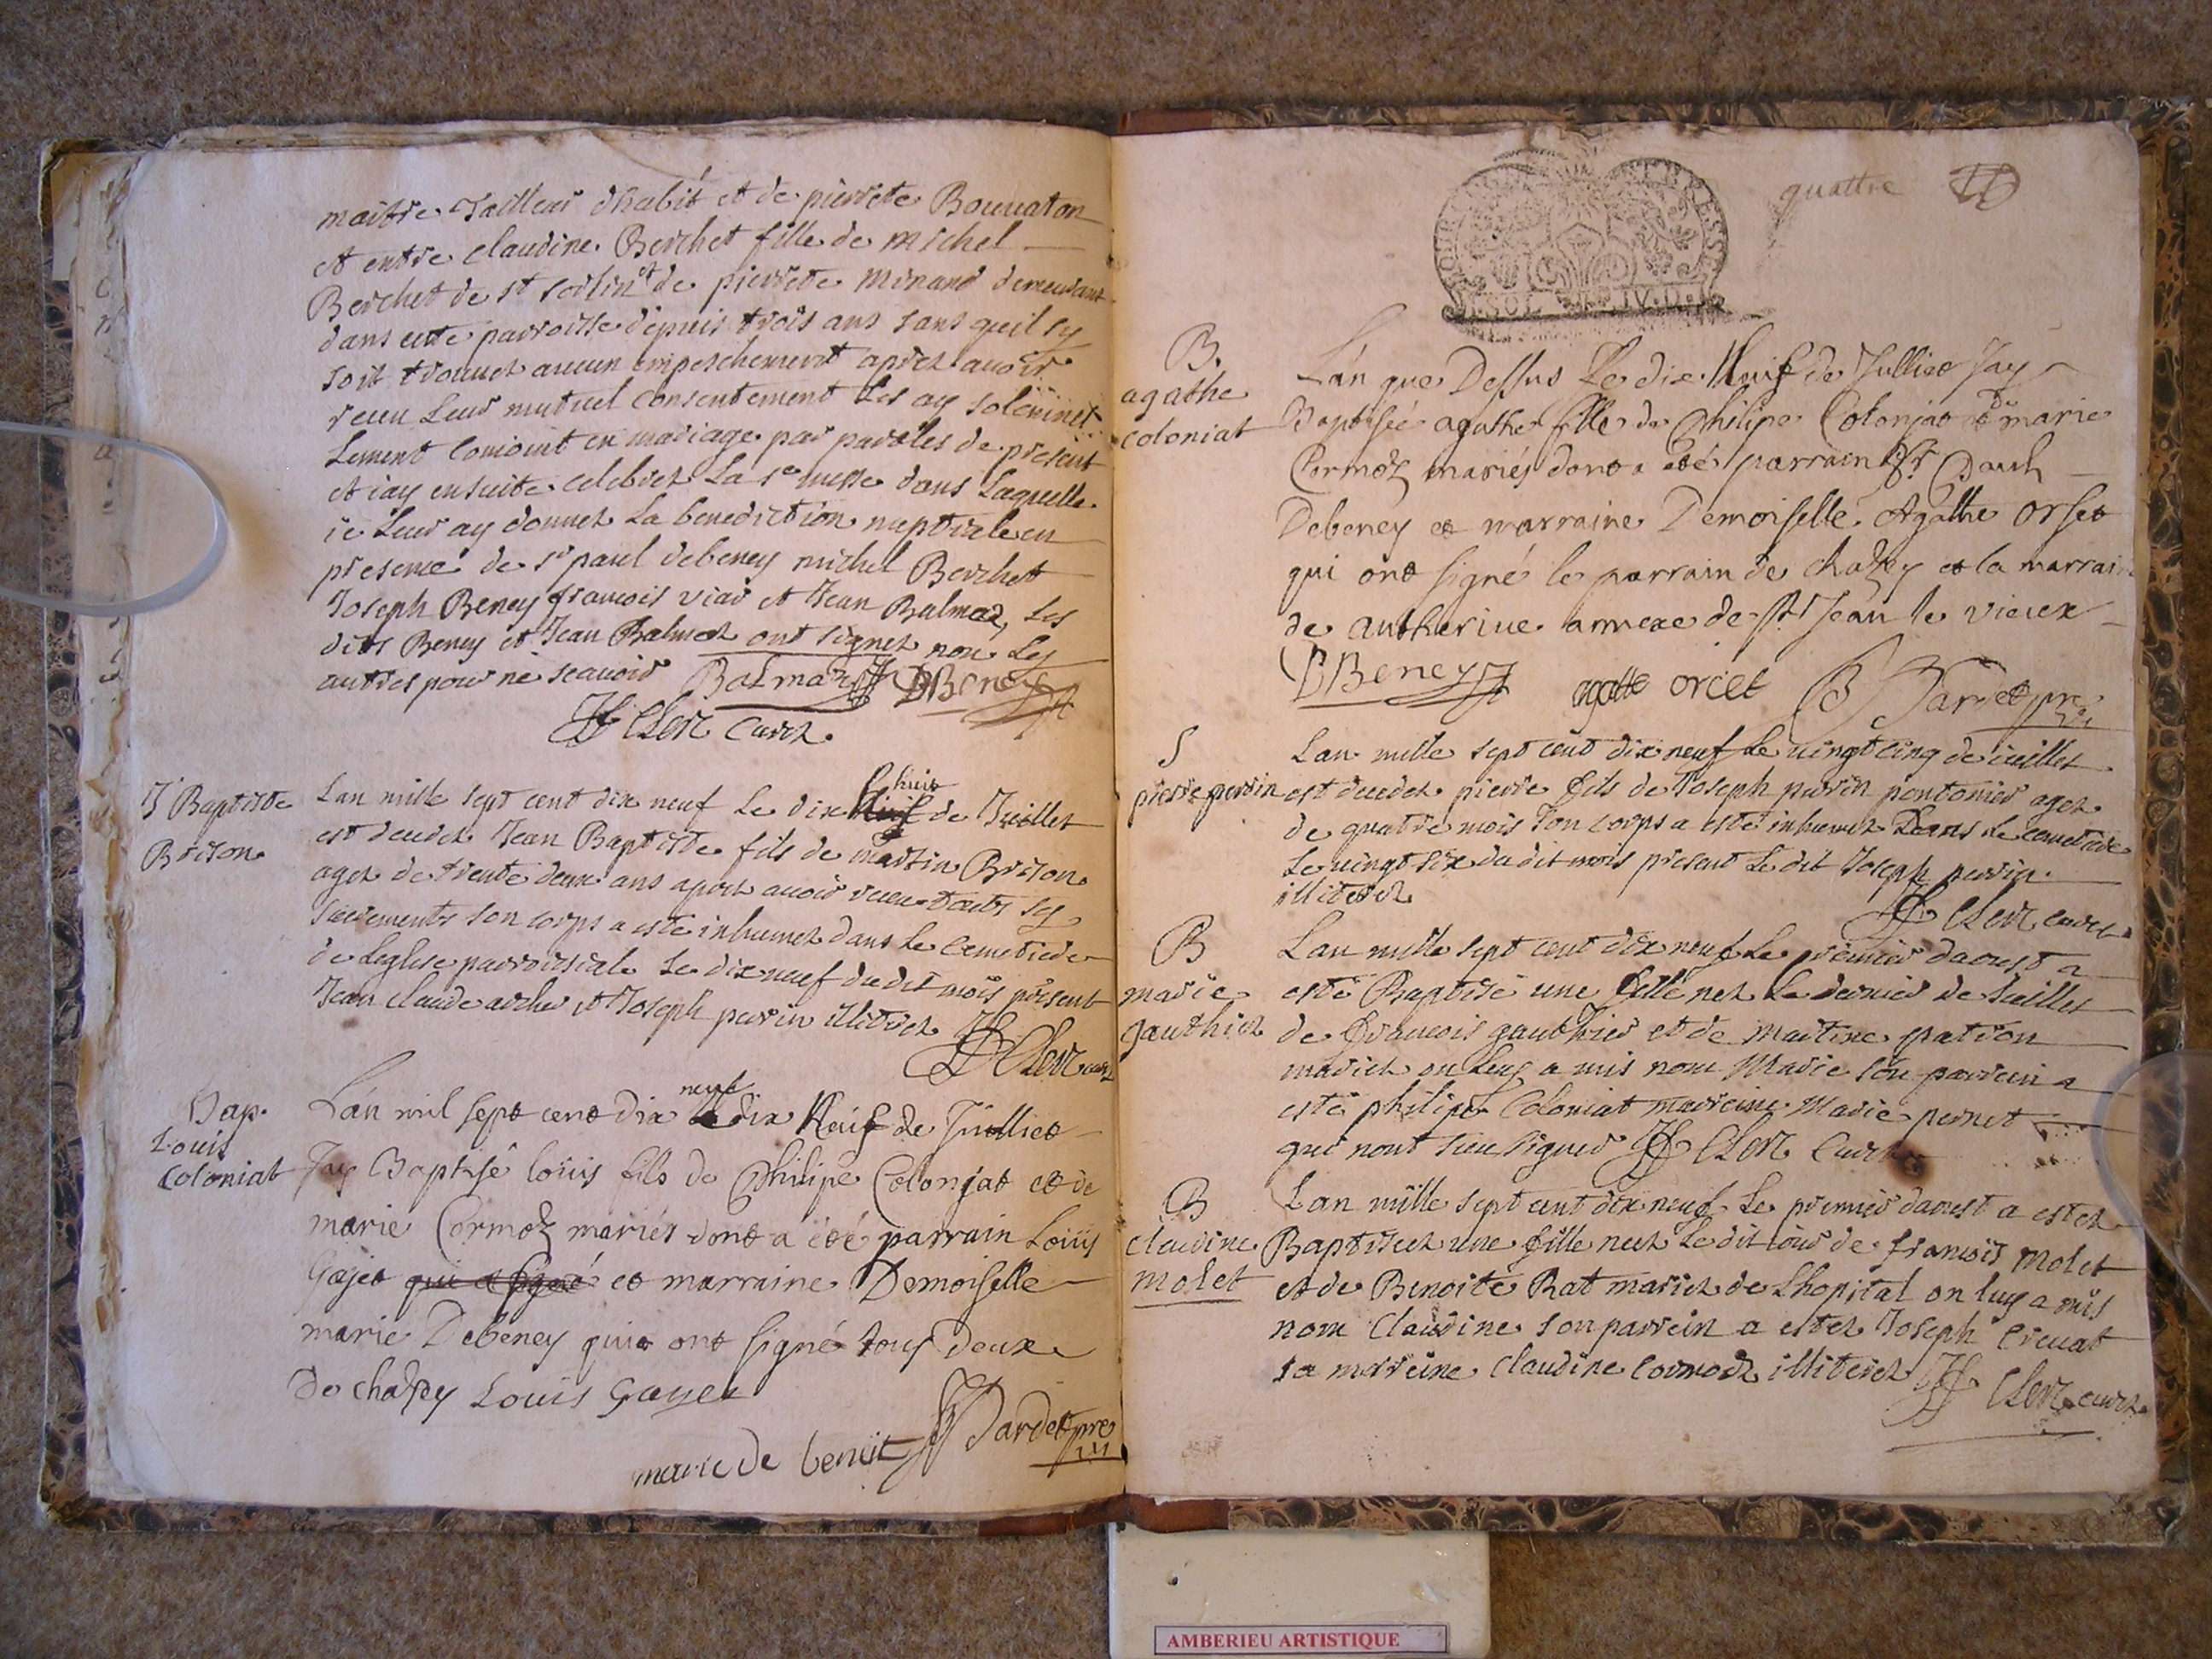 maitre Tailleur dhabit et de pierrete Bouuaton
et entre claudine Berchet fille de michel
Berchet de st sorlin et de pierrete minand demeurant
dans cette parroisse depuis trois ans sans queil sy
soit trouuez aucun empeschement aprez auoir
receu Leur mutuel consentement Les ay solemnel
Lement conioint en mariage par paroles de present
et iay ensuite celebrez La ste messe dans Laquelle
ie Leur ay donnez La benediction nuptiale en
presence de sr paul debeney michel Berchet
Joseph Beney francois viar et Jean Balmaz, Les
dits Beney et Jean Balmaz ont signez non Les
autres pour ne scauoir Balmaz DBeney
Clerc Curez.
J Baptiste
Brison
Lan mille sept cent dix neuf Le dix huit de Juillet
est decedez Jean Baptiste fils de martin Brison
agez de trente deux ans aprez auoir receu touts ses
sacrements son corps a esté inhumez dans Le cemetiere
de Leglise parroissiale Le dix neuf dudit mois present
Jean claude archer et Joseph perrin illitrez
Clerc curez
Bap.
Louis
Coloniat
Lán mil sept cent dix neuf Le dix Neuf de Juilliet
Jay Baptisé loüis fils de Philipe Colonjat et de
marie Cormoz mariés dont a été parrain Loüis
Gajet qui a signé et marraine Demoiselle
marie Debeney qui ont signé tous deux
de chazey Louis Gayet
marie de benëit Jardet pre
quattre
B.
agathe
coloniat
Lán que Dessus Le dix Neuf de Julliet Jay
Baptisée agathe fille de Philipe Colonjat et de marie
Cormoz mariés dont a été parrain Sr Paul
Debeney et marraine Demoiselle Agathe Orset
qui ont signé le parrain de chazey et la marraine
de autherive annexe de St Jean le vieux
DBeney agatte orcet Jardet pre
S
pierre perrin
Lan mille sept cent dix neuf Le uingt cinq de iuillet
est decedez pierre fils de Joseph perrin pontonier agez
de quatre mois son corps a esté inhumez Dans Le cemetiere
Le uingt six dudit mois present Le dit Joseph perrin
illiterez
Clerc curez
B
marie
gauthier
Lan mille sept cent dix neuf Le premier daoust a
esté Baptisé une fille nez Le dernier de Juillet
de francois gauthier et de martine pation
mariez on Luy a mis nom Marie son parrein a
esté philipe Coloniat marreine Marie pernet
qui nont sceu signer Clerc Curez
B
claudine
molet
Lan mille sept cent dix neuf Le premier daoust a estez
Baptiseez une fille neez Le dit iour de francois Molet
et de Benoite Rat mariez de Lhopital on luy a mis
nom Claudine son parrein a estez Joseph Creuat
sa marreine Claudine cormoz illiterez
Clerc curez
AMBERIEU ARTISTIQUE